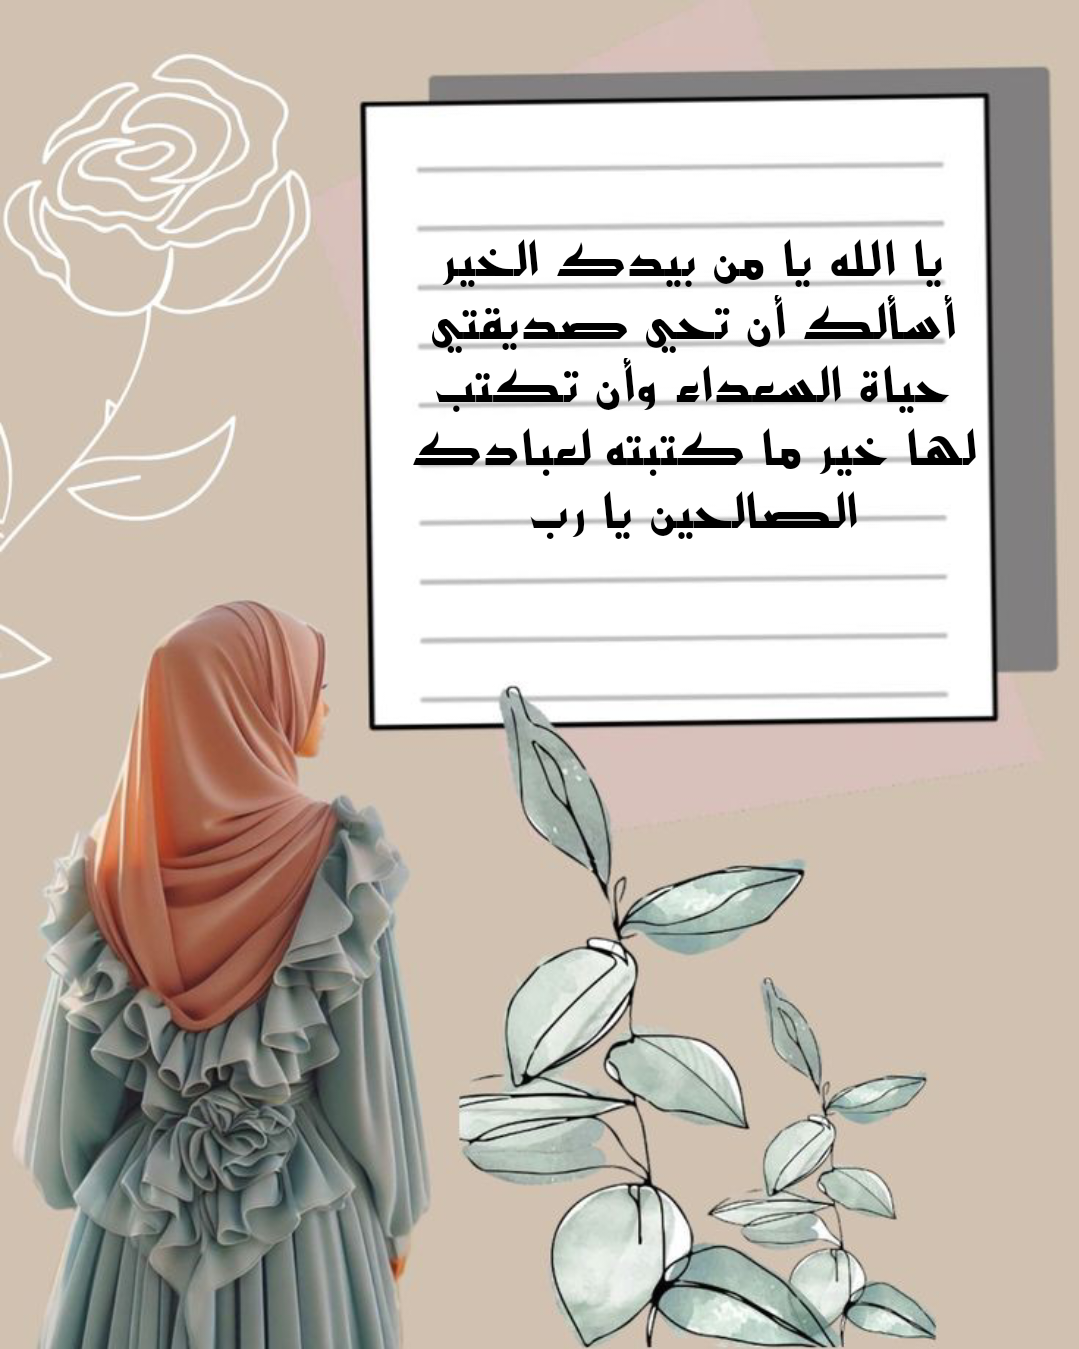 يا الله يا من بيدك الخير
أسألك أن تحي صديقتي
حياة السعداء وأن تكتب
لها خير ما كتبته لعبادك
الصالحين يا رب